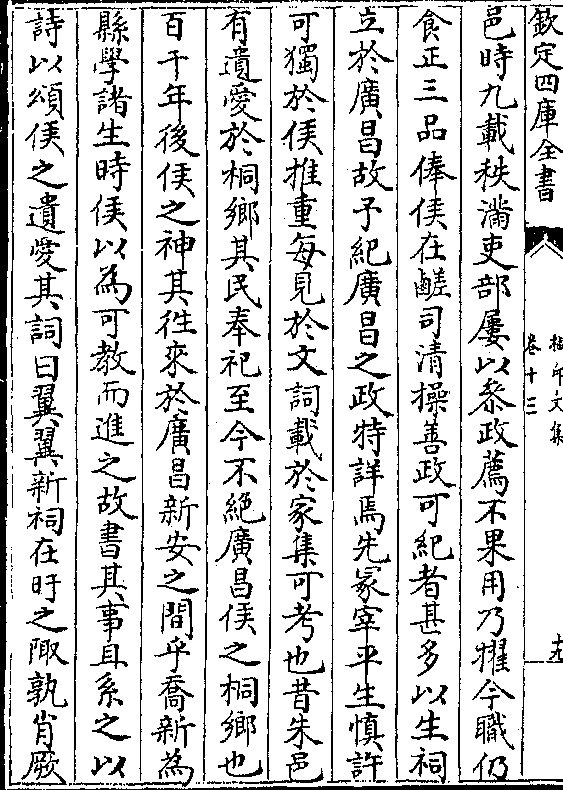 欽定四庫全書
卷十三
椒邱文集
十九
邑時九載秩滿吏部屢以叅政薦不果用乃擢今職仍
食正三品俸侯在鹺司清操善政可紀者甚多以生祠
立於廣昌故予紀廣昌之政特詳焉先冢宰平生慎許
可獨於侯推重每見於文詞載於家集可考也昔朱邑
有遺愛於桐鄉其民奉祀至今不絕廣昌侯之桐鄉也
百千年後侯之神其徃來於廣昌新安之間乎喬新為
縣學諸生時侯以為可教而進之故書其事且系之以
詩以頌侯之遺愛其詞曰翼翼新祠在旴之陬孰肖厥